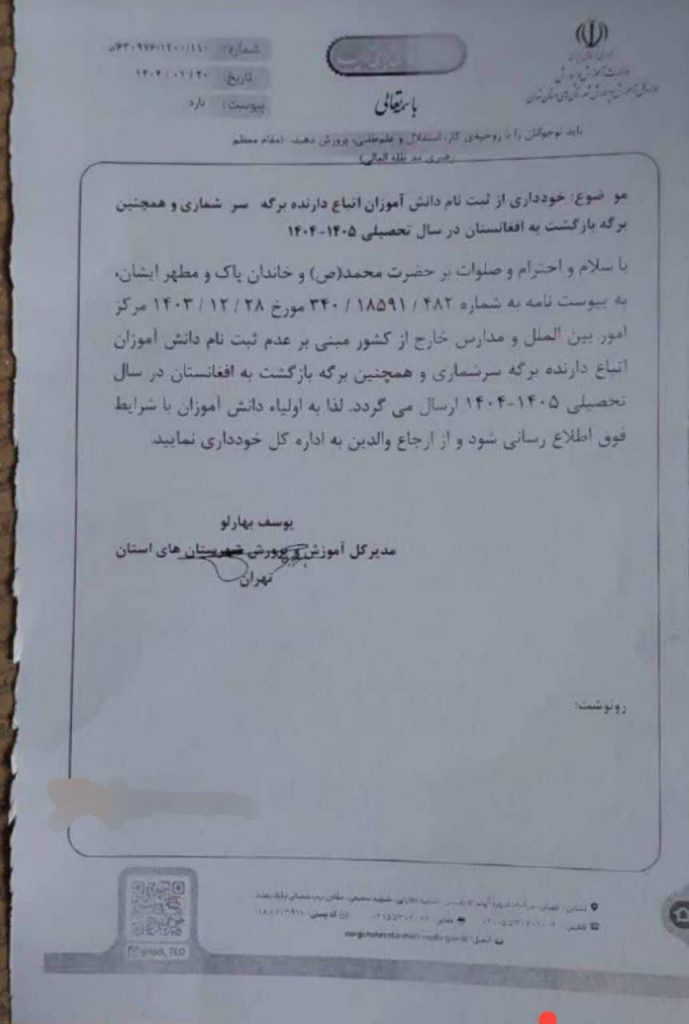 وزارت آموزش و پرورش
اداره کل آموزش و پرورش شهرستان های استان تهران
شماره: ۵۶۳۰۹۷۶-۱۲۰۰/۱۱۰
تاریخ: ۱۴۰۴/۰۱/۲۰
پیوست: دارد
باسمه تعالی
باید نوجوانان را با روحیه‌ی کار، استقلال و علم‌طلبی، پرورش دهید. (مقام معظم
رهبری مد ظله العالی)
مو ضوع: خودداری از ثبت نام دانش آموزان اتباع دارنده برگه سر شماری و همچنین
برگه بازگشت به افغانستان در سال تحصیلی ۱۴۰۵-۱۴۰۴
با سلام و احترام و صلوات بر حضرت محمد(ص) و خاندان پاک و مطهر ایشان،
به پیوست نامه به شماره ۴۸۲ / ۱۸۵۹۱ / ۳۴۰ مورخ ۲۸ / ۱۲ / ۱۴۰۳ مرکز
امور بین الملل و مدارس خارج از کشور مبنی بر عدم ثبت نام دانش آموزان
اتباع دارنده برگه سرشماری و همچنین برگه بازگشت به افغانستان در سال
تحصیلی ۱۴۰۵-۱۴۰۴ ارسال می گردد. لذا به اولیاء دانش آموزان با شرایط
فوق اطلاع رسانی شود و از ارجاع والدین به اداره کل خودداری نمایید.
یوسف بهارلو
مدیرکل آموزش و پرورش شهرستان های استان
تهران
رونوشت:
نشانی: تهران
تلفن:
نمابر:
کد پستی:
ایمیل: